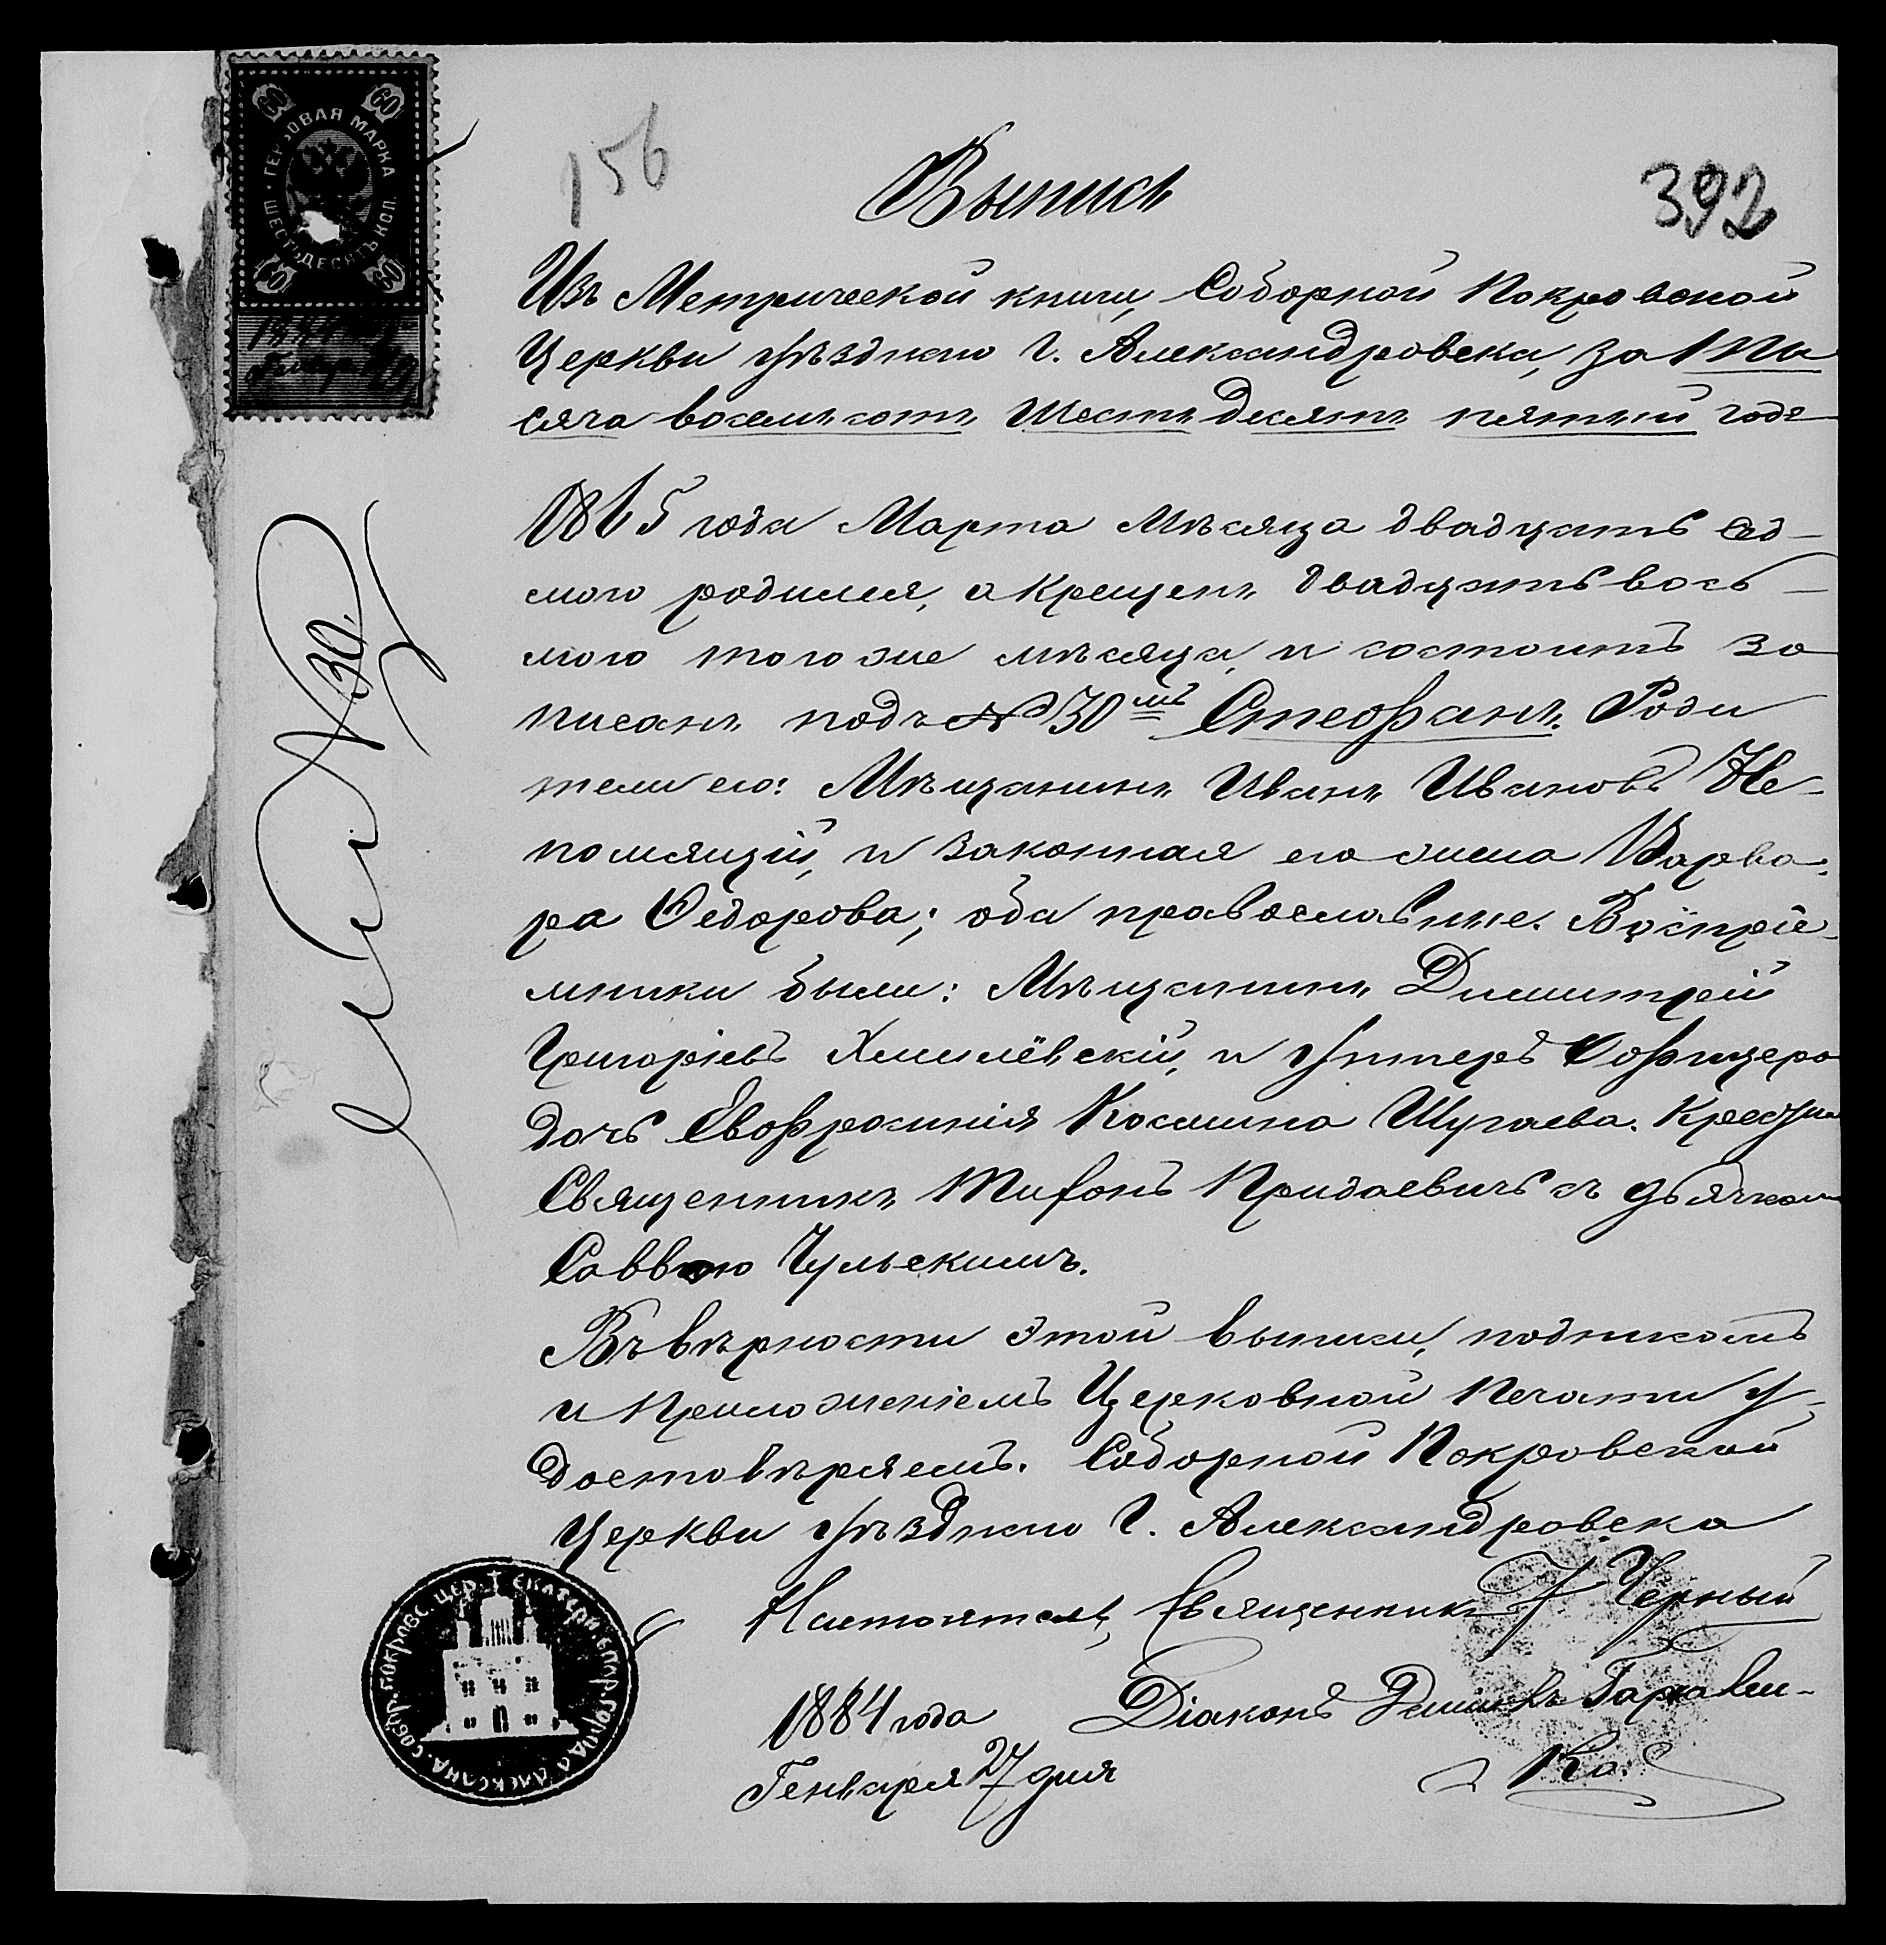 ГЕРБОВАЯ МАРКА ШЕСТЬДЕСЯТЪ КОП.
60 60
60 60
156
392
Выпись
Изъ Метрической книги, Соборной Покровской
Церкви уѣзднаго г. Александровска, за 1 ты
сяча восемьсотъ шестьдесятъ пятый годъ
1865 года Марта мѣсяца двадцать сед-
мого родился, а крещенъ двадцать вось-
мого того же мѣсяца, и состоитъ за
писанъ подъ № 30мъ Стефанъ. Роди
тели его: Мѣщанинъ Иванъ Ивановъ Не-
помящій, и законная его жена Варва-
ра Федорова; оба православные. Воспріе-
мники были: Мѣщанинъ Димитрій
Григоріевъ Хмилёвскій, и унтеръ офицера
дочь Евфросинія Космина Шугаева.
Священникъ Тифонъ Придаевичь съ дьячкомъ
Саввою Чульскимъ.
Въ вѣрности этой выписи, подписомъ
и приложеніемъ Церковной печати у-
достовѣряемъ. Соборной Покровской
Церкви уѣзднаго г. Александровска
Настоятель, Священникъ Черный
1884 года
Діаконъ
Генваря 27 дня
№ 30.
СОБОР. ПОКРОВС. ЦЕР. ЕКАТЕРИН. ЕПАР. ГОРОДА АЛЕКСАНД.